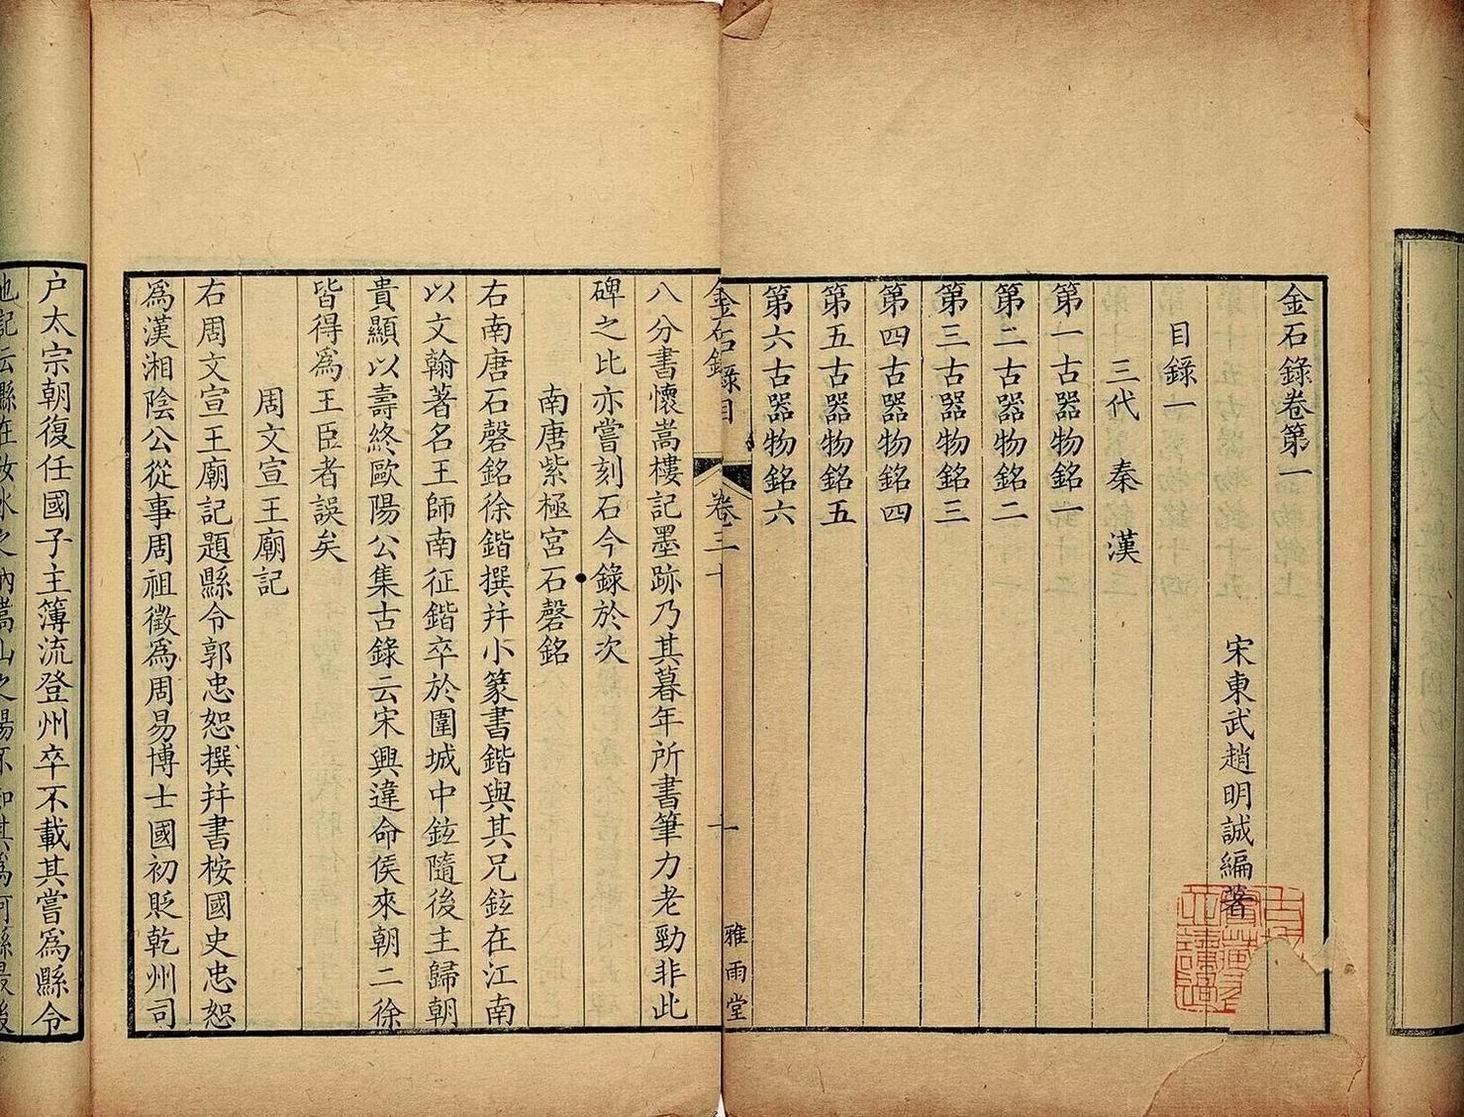 金石錄卷第一
宋東武趙明誠編著
目錄一
三代 秦 漢
第一古器物銘一
第二古器物銘二
第三古器物銘三
第四古器物銘四
第五古器物銘五
第六古器物銘六
雅雨堂
金石錄 卷三十
八分書懷嵩樓記墨跡乃其暮年所書筆力老勁非此
碑之比亦嘗刻石今錄於次
南唐紫極宮石磬銘
右南唐石磬銘徐鍇撰幷小篆書鍇與其兄鉉在江南
以文翰著名王師南征鍇卒於圍城中鉉隨後主歸朝
貴顯以壽終歐陽公集古錄云宋興違命侯來朝二徐
皆得爲王臣者誤矣
周文宣王廟記
右周文宣王廟記題縣令郭忠恕撰幷書桉國史忠恕
爲漢湘陰公從事周祖徵爲周易博士國初貶乾州司
戶太宗朝復任國子主簿流登州卒不載其嘗爲縣令